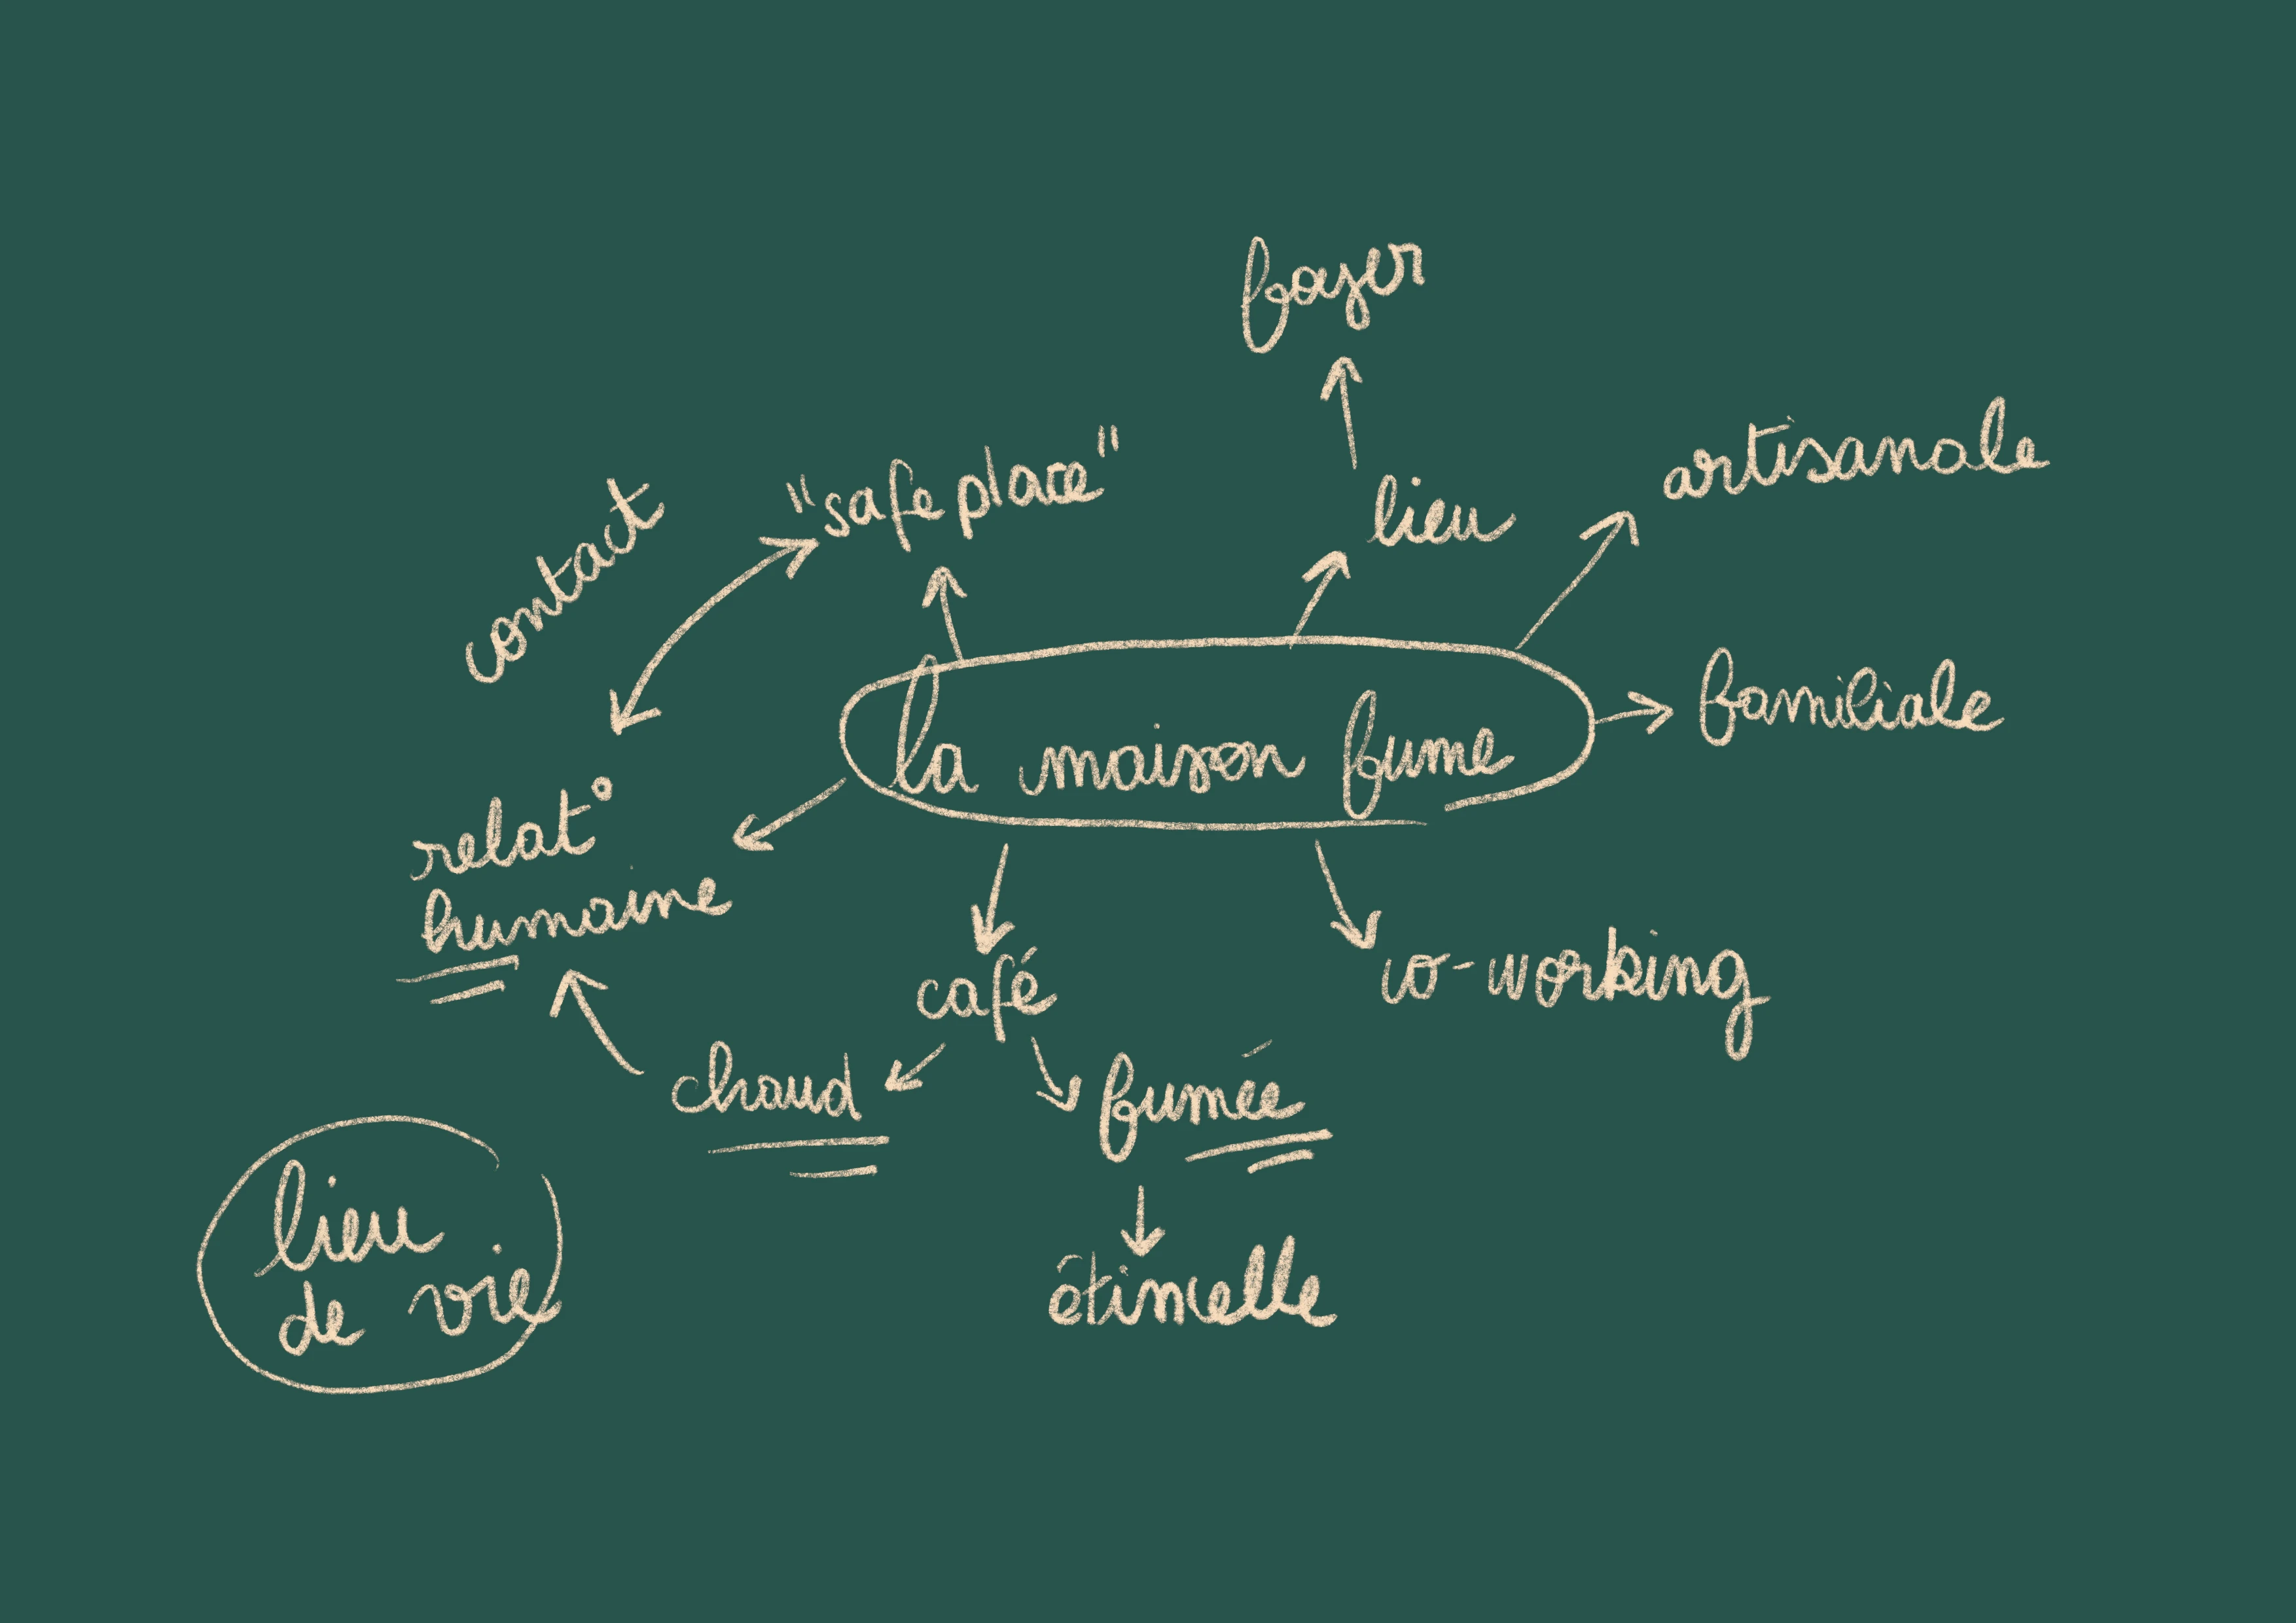 foyer
artisanale
"safe place"
lieu
contact
familiale
la maison fume
relat°
humaine
café
co-working
chaud
fumée
lieu
de vie
étincelle